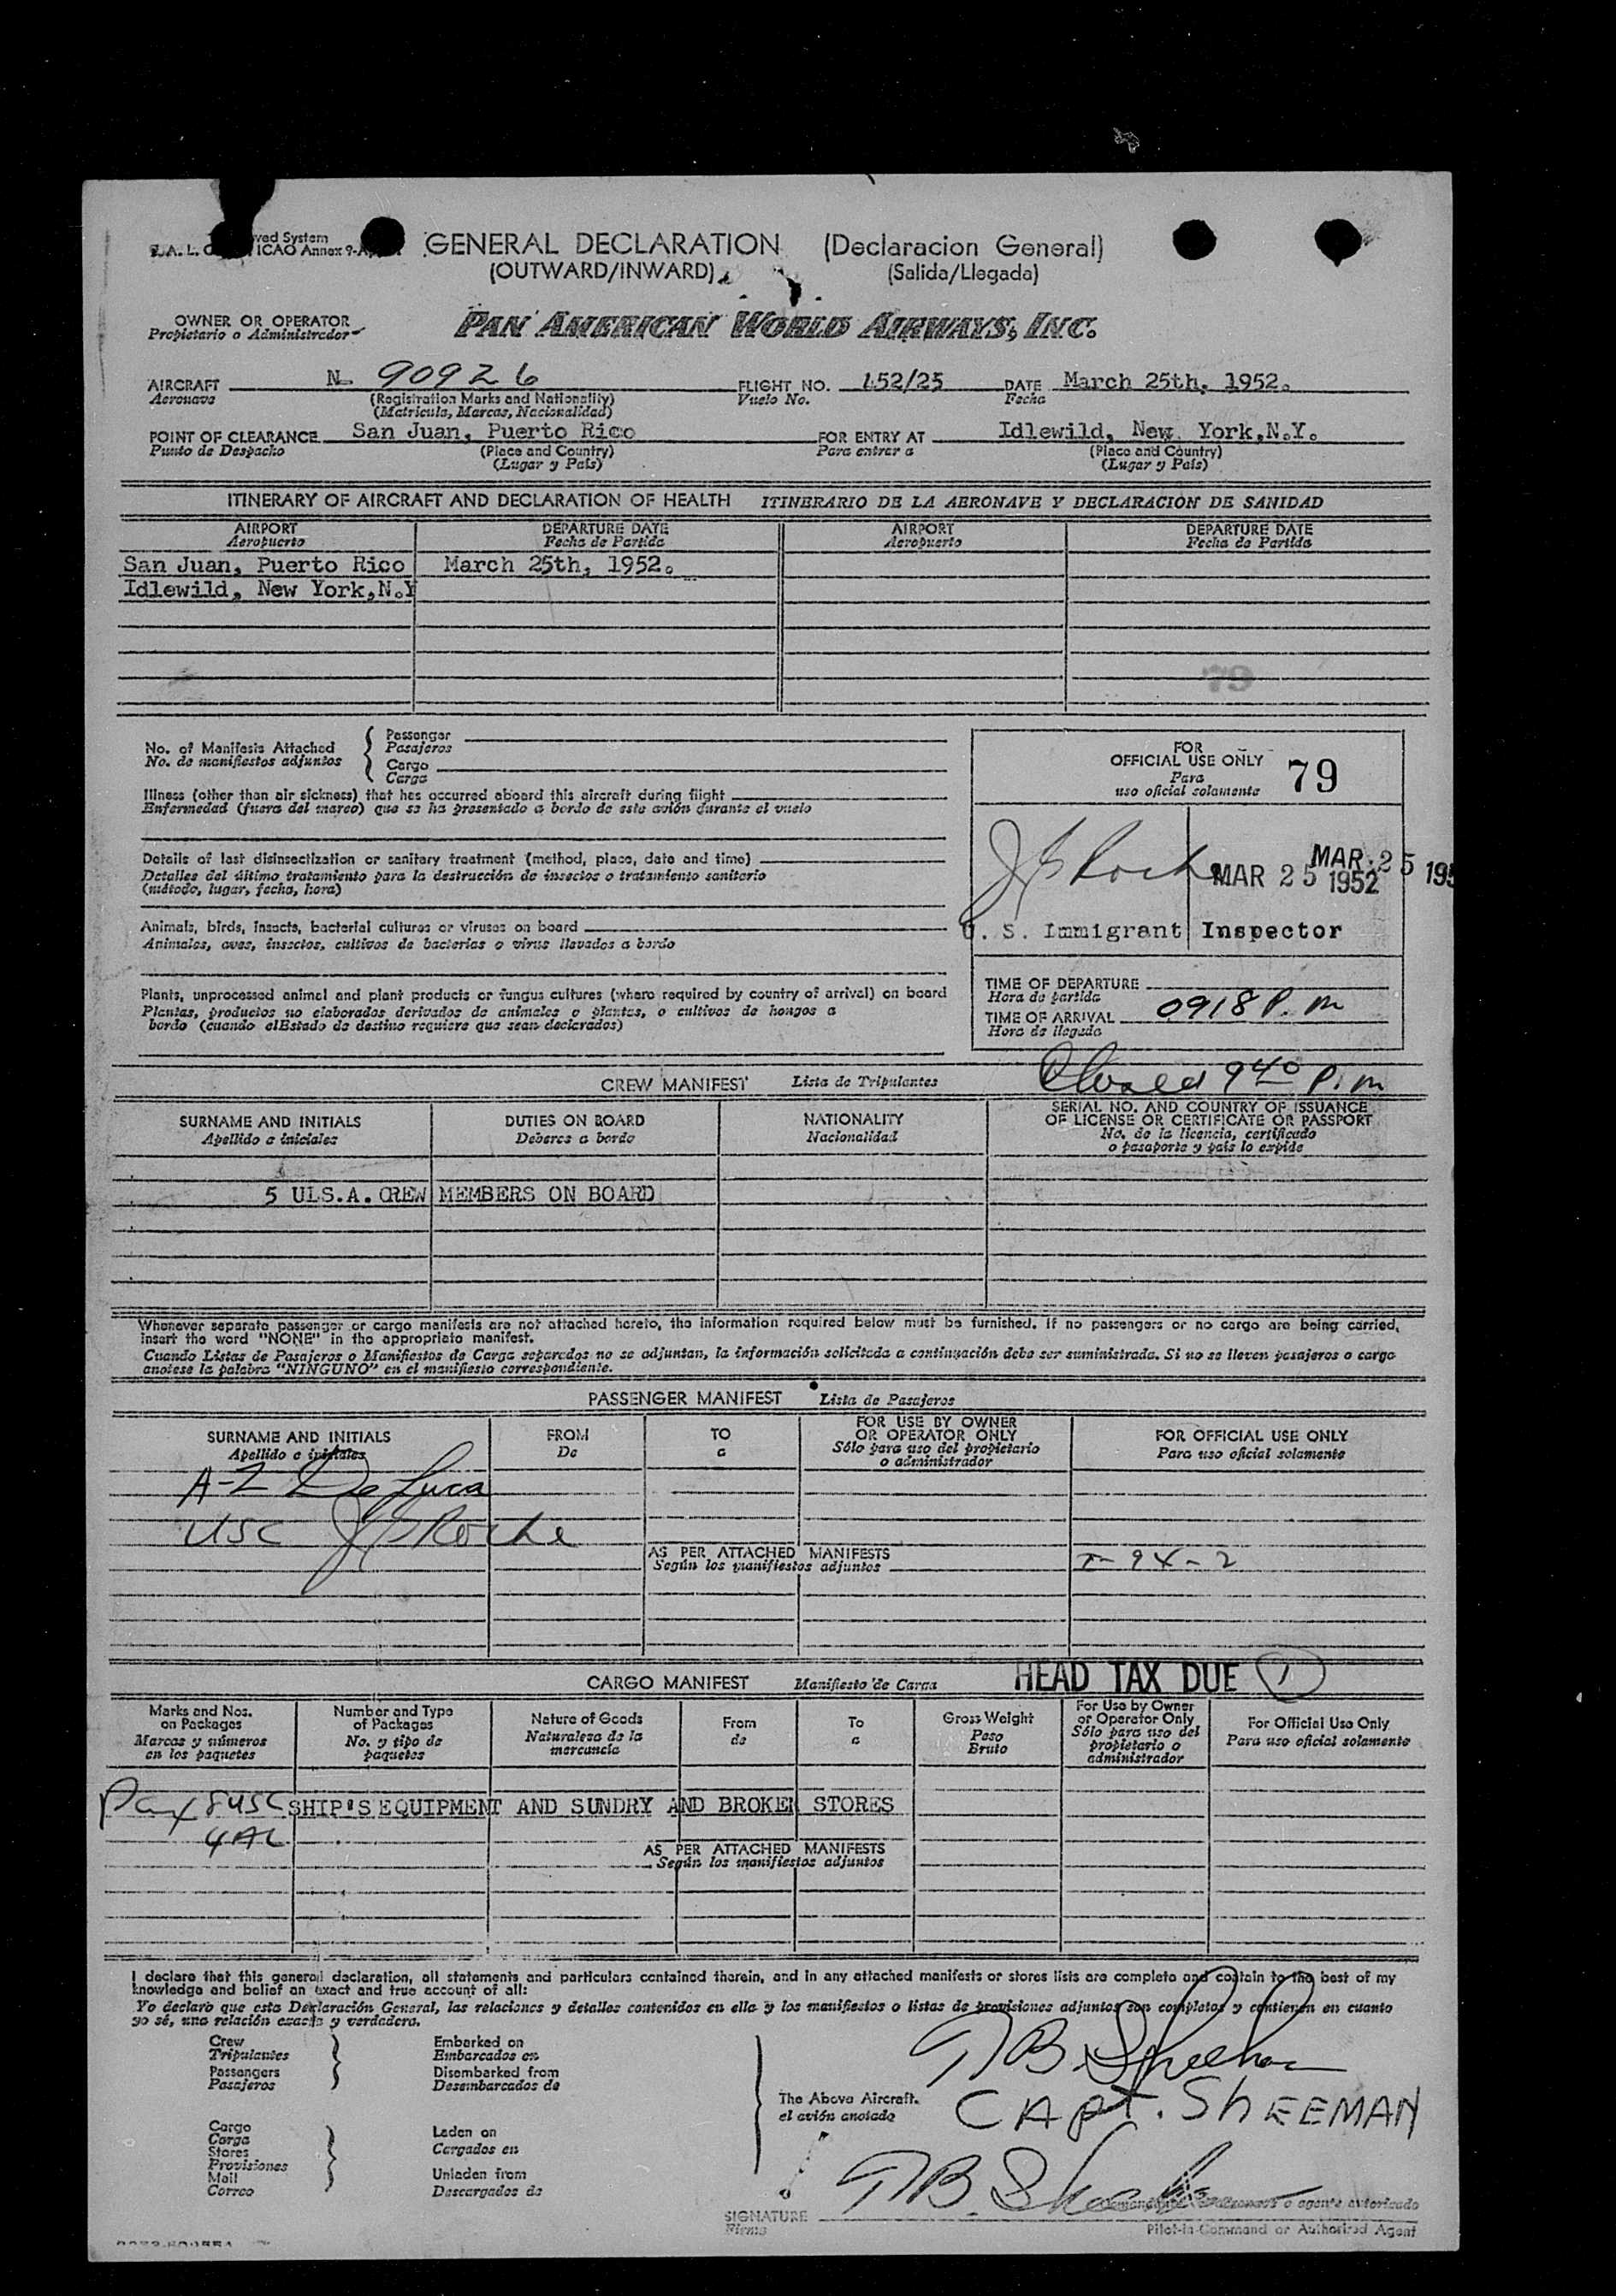 ved System
ICAO Annex 9-A
GENERAL DECLARATION (Declaracion General)
(OUTWARD/INWARD) (Salida/Llegada)
OWNER OR OPERATOR
Propietario o Administrador
PAN AMERICAN WORLD AIRWAYS, INC.
AIRCRAFT N 90926 FLIGHT NO. 152/25 DATE March 25th, 1952.
Aeronave (Registration Marks and Nationality) Vuelo No. Fecha
(Matricula, Marcas, Nacionalidad)
POINT OF CLEARANCE San Juan, Puerto Rico FOR ENTRY AT Idlewild, New York,N.Y.
Punto de Despacho (Place and Country) Para entrar a (Place and Country)
(Lugar y País) (Lugar y País)
ITINERARY OF AIRCRAFT AND DECLARATION OF HEALTH ITINERARIO DE LA AERONAVE Y DECLARACIÓN DE SANIDAD
AIRPORT DEPARTURE DATE AIRPORT DEPARTURE DATE
Aeropuerto Fecha de Partida Aeropuerto Fecha de Partida
San Juan, Puerto Rico March 25th, 1952.
Idlewild, New York,N.Y
79
No. of Manifests Attached
No. de manifiestos adjuntos
Passenger
Pasajeros
Cargo
Carga
Illness (other than air sickness) that has occurred aboard this aircraft during flight
Enfermedad (fuera del mareo) que se ha presentado a bordo de este avión durante el vuelo
Details of last disinsectization or sanitary treatment (method, place, date and time)
Detalles del último tratamiento para la destrucción de insectos o tratamiento sanitario
(método, lugar, fecha, hora)
Animals, birds, insects, bacterial cultures or viruses on board
Animales, aves, insectos, cultivos de bacterias o virus llevados a bordo
Plants, unprocessed animal and plant products or fungus cultures (where required by country of arrival) on board
Plantas, productos no elaborados derivados de animales o plantas, o cultivos de hongos a
bordo (cuando elEstado de destino requiere que sean declarados)
FOR
OFFICIAL USE ONLY 79
Para
uso oficial solamente
J S Roche
MAR 25 1952
MAR 25 195
U. S. Immigrant Inspector
TIME OF DEPARTURE
Hora de partida
TIME OF ARRIVAL 0918 P.m
Hora de llegada
Closed 9 40 P.m
CREW MANIFEST Lista de Tripulantes
SURNAME AND INITIALS DUTIES ON BOARD NATIONALITY SERIAL NO. AND COUNTRY OF ISSUANCE
Apellido e iniciales Deberes a bordo Nacionalidad OF LICENSE OR CERTIFICATE OR PASSPORT
No. de la licencia, certificado
o pasaporte y país lo expide
5 U.S.A. CREW MEMBERS ON BOARD
Whenever separate passenger or cargo manifests are not attached hereto, the information required below must be furnished. If no passengers or no cargo are being carried,
insert the word "NONE" in the appropriate manifest.
Cuando Listas de Pasajeros o Manifiestos de Carga separados no se adjuntan, la información solicitada a continuación debe ser suministrada. Si no se lleven pasajeros o carga
anotese la palabra "NINGUNO" en el manifiesto correspondiente.
PASSENGER MANIFEST Lista de Pasajeros
SURNAME AND INITIALS FROM TO FOR USE BY OWNER FOR OFFICIAL USE ONLY
Apellido e iniciales De a OR OPERATOR ONLY Para uso oficial solamente
Sólo para uso del propietario
o administrador
A-Z De Luca
USC J S Roche
AS PER ATTACHED MANIFESTS
Según los manifiestos adjuntos
I-94-2
CARGO MANIFEST Manifiesto de Carga HEAD TAX DUE 1
Marks and Nos. on Packages
Marcas y números en los paquetes
Number and Type of Packages
No. y tipo de paquetes
Nature of Goods
Naturaleza de la mercancía
From
de
To
a
Gross Weight
Peso Bruto
For Use by Owner or Operator Only
Sólo para uso del propietario o administrador
For Official Use Only
Para uso oficial solamente
Pax 8 USC SHIP'S EQUIPMENT AND SUNDRY AND BROKEN STORES
4 AL
AS PER ATTACHED MANIFESTS
Según los manifiestos adjuntos
I declare that this general declaration, all statements and particulars contained therein, and in any attached manifests or stores lists are complete and contain to the best of my
knowledge and belief an exact and true account of all:
Yo declaro que esta Declaración General, las relaciones y detalles contenidos en ella y los manifiestos o listas de provisiones adjuntos son completos y contienen en cuanto
yo sé, una relación exacta y verdadera.
Crew
Tripulantes
Passengers
Pasajeros
Embarked on
Embarcados en
Disembarked from
Desembarcados de
Cargo
Carga
Stores
Provisiones
Mail
Correo
Laden on
Cargados en
Unladen from
Descargados de
The Above Aircraft.
el avión anotado
CAPT. ShEEMAN
SIGNATURE
Firma
o agente autorizado
Pilot-in-Command or Authorized Agent